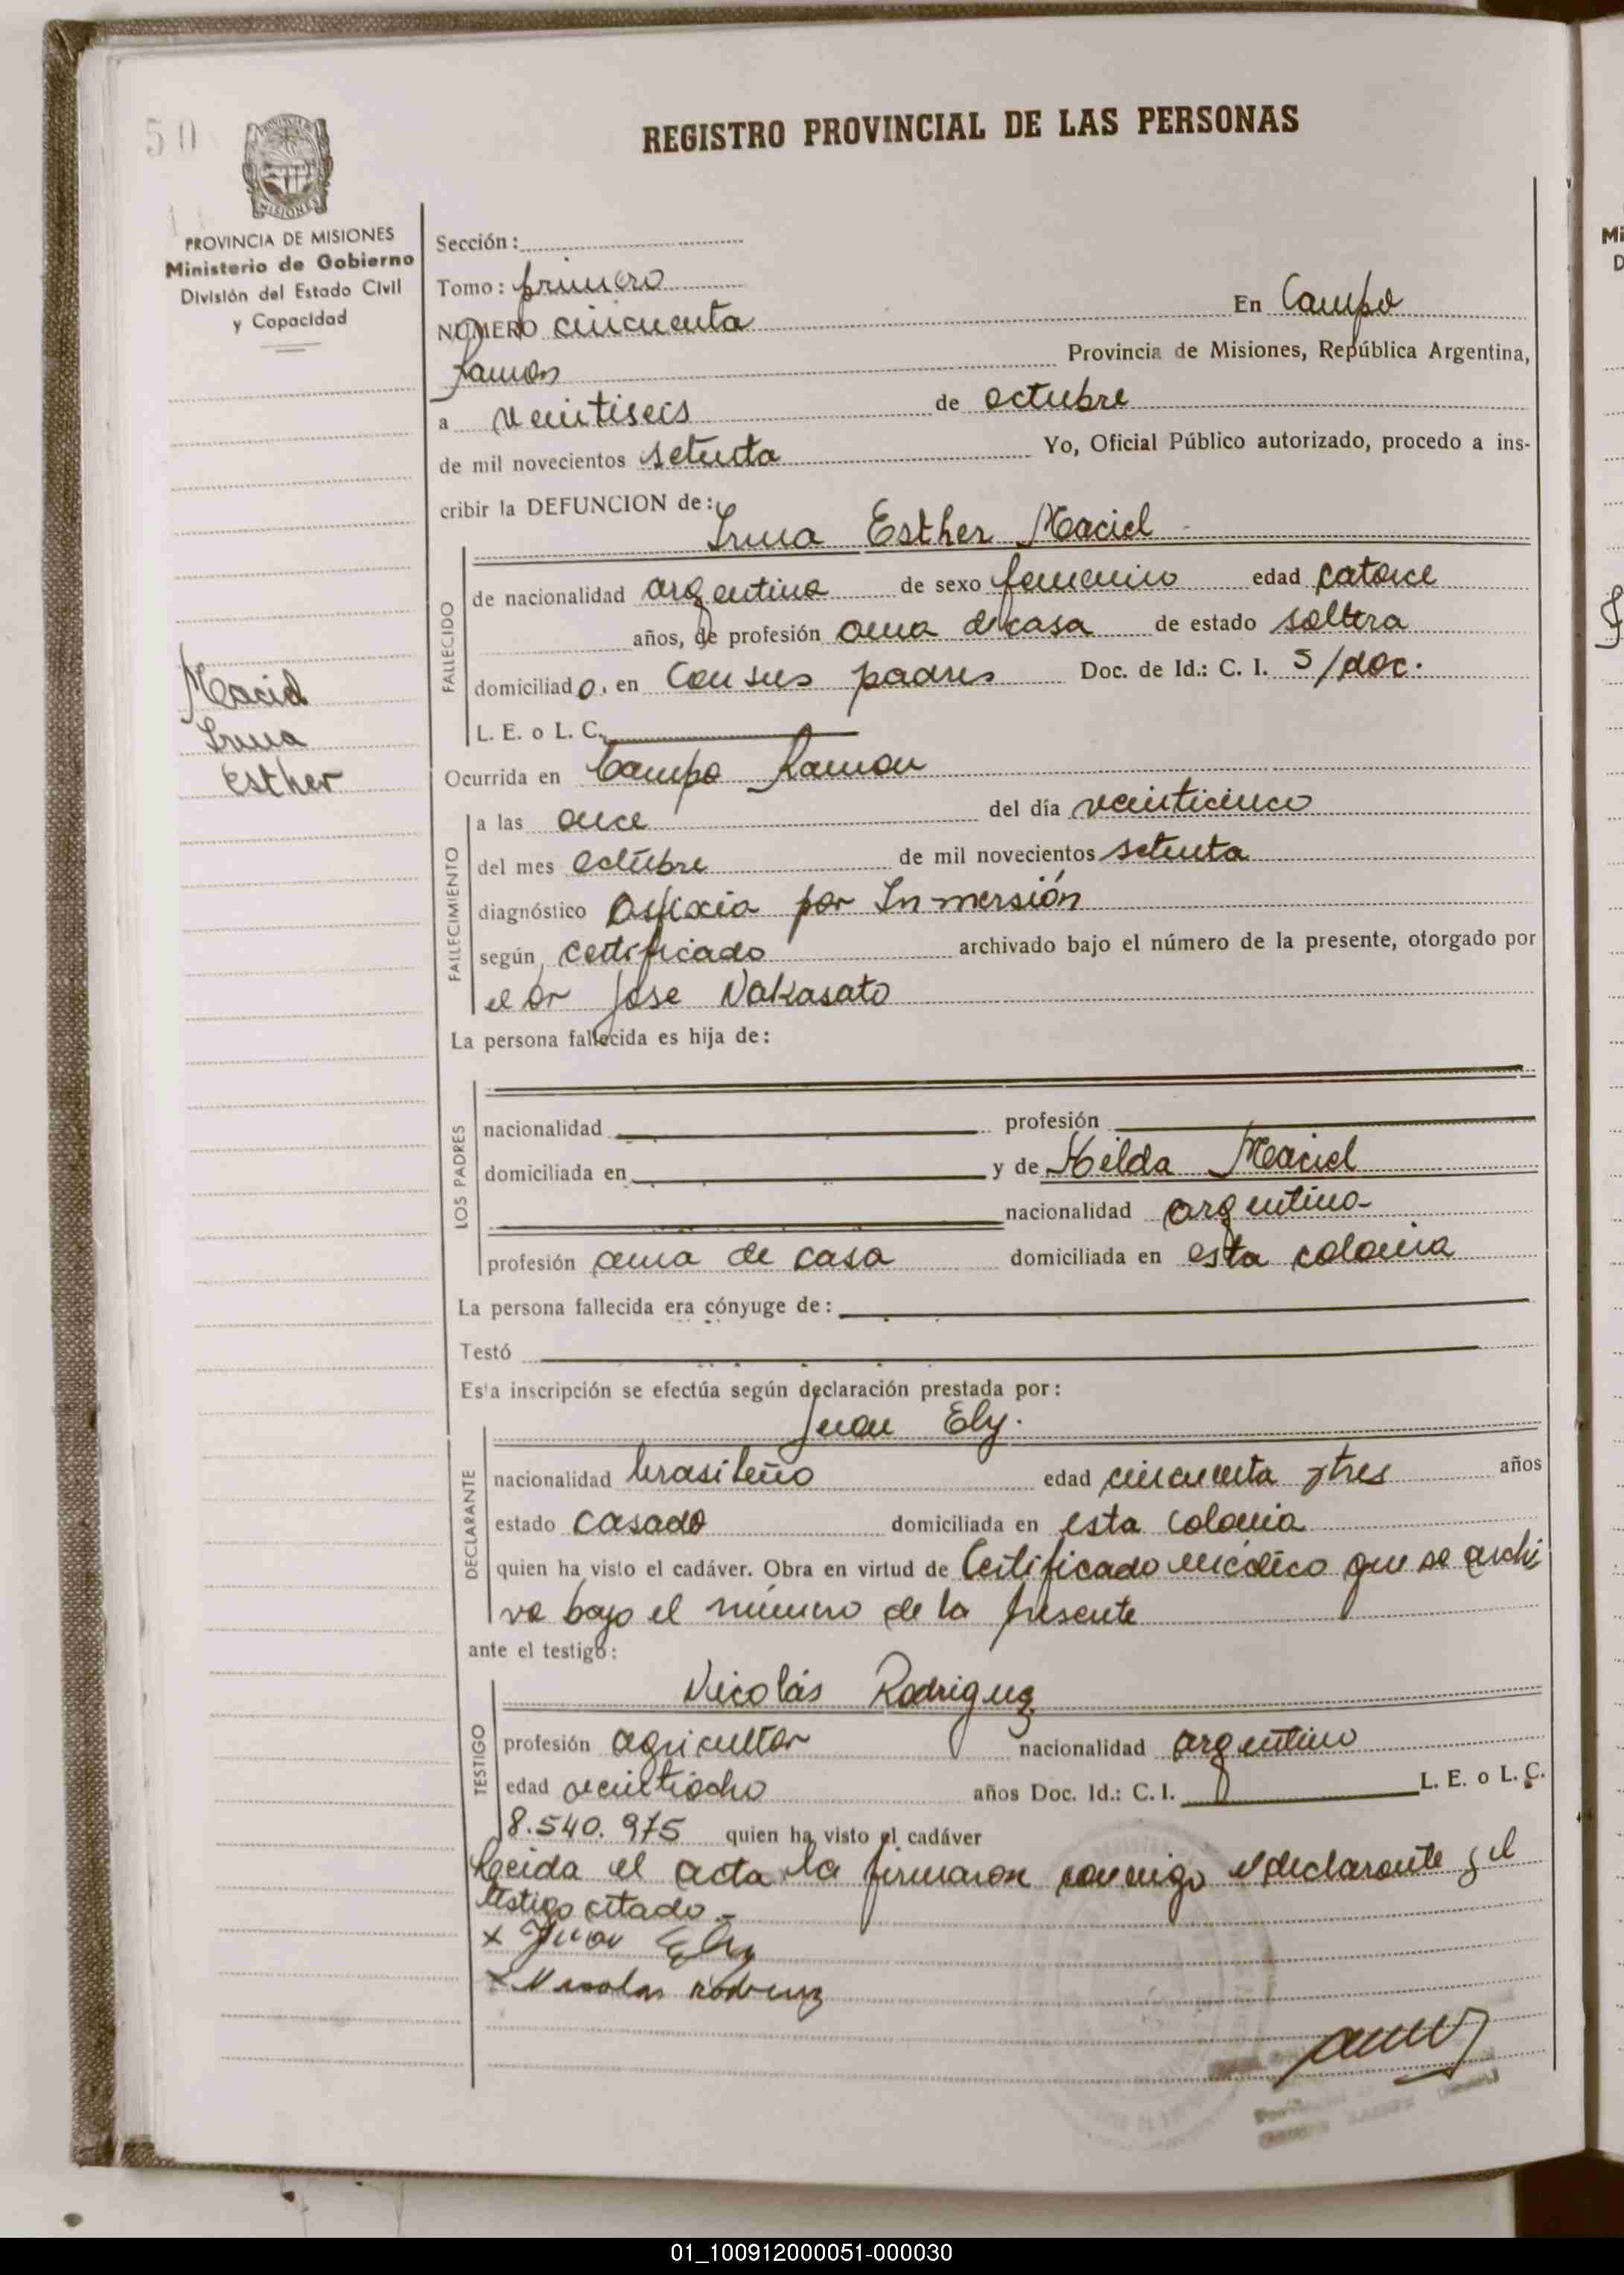 50
REGISTRO PROVINCIAL DE LAS PERSONAS
MISIONES
PROVINCIA DE MISIONES
Ministerio de Gobierno
División del Estado Civil
y Capacidad
Sección:
Tomo: primero
NUMERO cincuenta En Campo
Ramon Provincia de Misiones, República Argentina,
a veintiseis de octubre
de mil novecientos setenta Yo, Oficial Público autorizado, procedo a ins-
cribir la DEFUNCION de:
Irma Esther Maciel
FALLECIDO
de nacionalidad argentina de sexo femenino edad catorce
años, de profesión ama de casa de estado soltera
domiciliado, en Con sus padres Doc. de Id.: C. I. S/doc.
L. E. o L. C.
Maciel
Irma
Esther
Ocurrida en Campo Ramon
FALLECIMIENTO
a las once del día veinticinco
del mes octubre de mil novecientos setenta
diagnóstico Asfixia por In-mersión
según certificado archivado bajo el número de la presente, otorgado por
el Dr Jose Nakasato
La persona fallecida es hija de:
LOS PADRES
nacionalidad profesión
domiciliada en y de Hilda Maciel
nacionalidad argentina
profesión ama de casa domiciliada en esta colonia
La persona fallecida era cónyuge de:
Testó
Esta inscripción se efectúa según declaración prestada por:
Juan Ely.
DECLARANTE
nacionalidad brasileño edad cincuenta y tres años
estado casado domiciliada en esta colonia
quien ha visto el cadáver. Obra en virtud de Certificado médico que se archi
va bajo el número de la presente
ante el testigo:
Nicolás Rodriguez
TESTIGO
profesión agricultor nacionalidad argentino
edad veintiocho años Doc. Id.: C. I. L. E. o L. C.
8.540.975 quien ha visto el cadáver
Leeida el acta la firmaron conmigo el declarante y el
testigo citado.-
x Juan Ely
x Nicolas
01_100912000051-000030